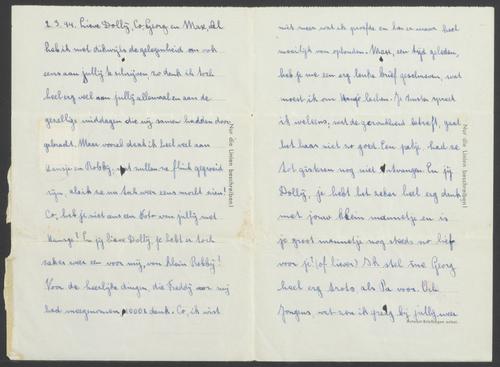 2.3.44. Lieve Dolly, Co, Georg en Max, Al
heb ik niet dikwijls de gelegenheid om ook
eens aan jullie te schrijven zo denk ik toch
heel erg veel aan jullie allemaal en aan de
gezellige middagen die wij samen hadden door-
gebracht. Maar vooral denk ik heel veel aan
Hansje en Robby, wat zullen ze flink gegroeid
zijn, als ik ze nu toch weer eens mocht zien!
Co, heb je niet eens een foto van jullie met
Hansje? En jij lieve Dolly, je hebt er toch
zeker weer een voor mij, van klein Robby!
Voor de heerlijke dingen, die Freddy voor mij
had meegenomen 1000x dank. Co, ik wist
Nur die Linien beschreiben!
niet meer wat ik proefde en kon er maar heel
moeilijk van afblijven. Max, een tijd geleden,
heb je me een erg leuke brief geschreven, wat
moest ik om lachen. Je zuster spreek
ik weleens, wat de gezondheid betreft, gaat
het haar niet zo goed. Een patje had ze
tot gisteren nog niet ontvangen. En jij
Dolly, je hebt het zeker heel erg druk
met jouw klein mannetje en is
je groot mannetje nog steeds zo lief
voor je? (of liever) Ik stel me Georg
heel erg trots, als Pa voor. Och
Jongens, wat zou ik graag bij jullie weer
Nur die Linien beschreiben!